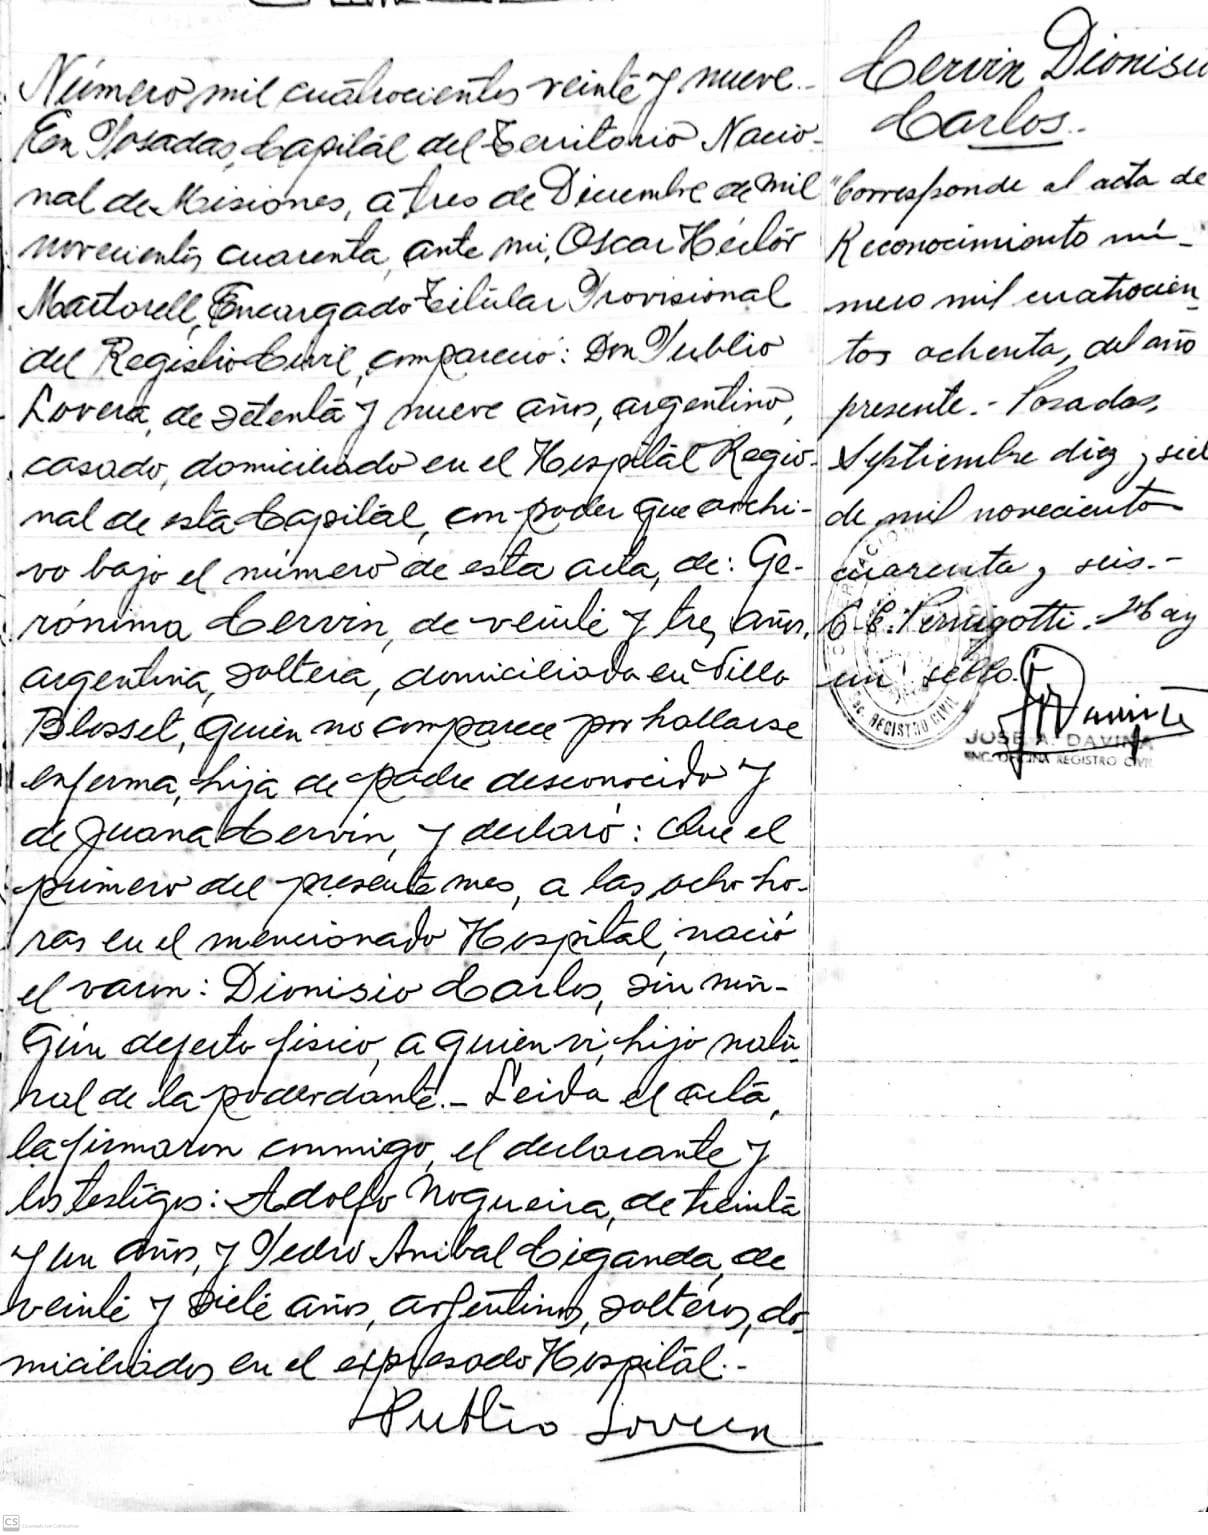 Número mil cuatrocientos veinte y nueve.-
En Posadas, Capital del Territorio Nacio-
nal de Misiones, a tres de Diciembre de mil
novecientos cuarenta, ante mi, Oscar Héctor
Martorell, Encargado Titular Provisional
del Registro Civil, compareció: Don Publio
Lovera, de setenta y nueve años, argentino,
casado, domiciliado en el Hospital Regio-
nal de esta Capital, con poder que archi-
vo bajo el número de esta acta, de: Ge-
rónima Cervin, de veinte y tres años,
argentina, soltera, domiciliada en Villa
Blosset, quien no comparece por hallarse
enferma, hija de padre desconocido y
de Juana Cervin, y declaró: Que el
primero del presente mes, a las ocho ho-
ras en el mencionado Hospital, nació
el varon: Dionisio Carlos, sin nin-
gún defecto fisico, a quien vi, hijo natu-
ral de la poderdante.- Leida el acta,
la firmaron conmigo, el declarante y
los testigos: Adolfo Nogueira, de treinta
y un años, y Pedro Anibal Ciganda, de
veinte y siete años, argentinos, solteros, do-
miciliados en el expresado Hospital.-
Publio Lovera
Cervin Dionisio
Carlos.-
"Corresponde al acta de
Reconocimiento nú-
mero mil cuatrocien-
tos ochenta, del año
presente.- Posadas,
Septiembre diez y siete
de mil novecientos
cuarenta y seis.-
C. E. Pernigotti. Hay
un sello.
REGISTRO CIVIL
JOSE A. DAVIÑA
ENC. OFICINA REGISTRO CIVIL
CS